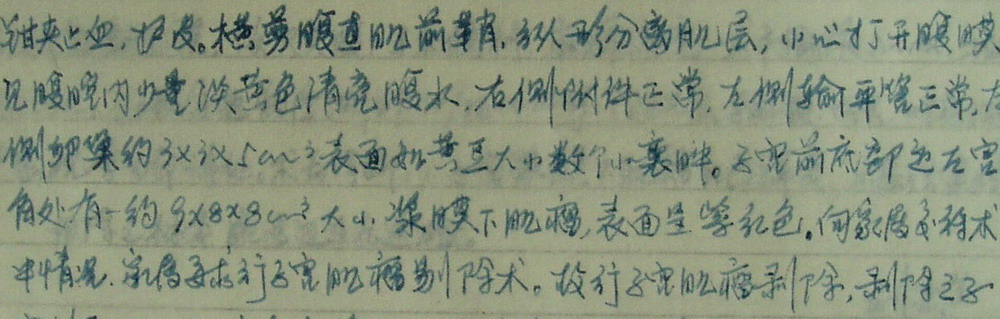 钳夹止血,护皮。横剪腹直肌前鞘,纵形分离肌层,小心打开腹膜
见腹腔内少量淡黄色清亮腹水,右侧附件正常,左侧输卵管正常,左
侧卵巢约3×3×5cm³表面如黄豆大小数个小囊肿。子宫前底部近左宫
角处有一约9×8×8cm³大小浆膜下肌瘤,表面呈紫红色。向家属交待术
中情况,家属要求行子宫肌瘤剔除术。故行子宫肌瘤剥除,剥除之子